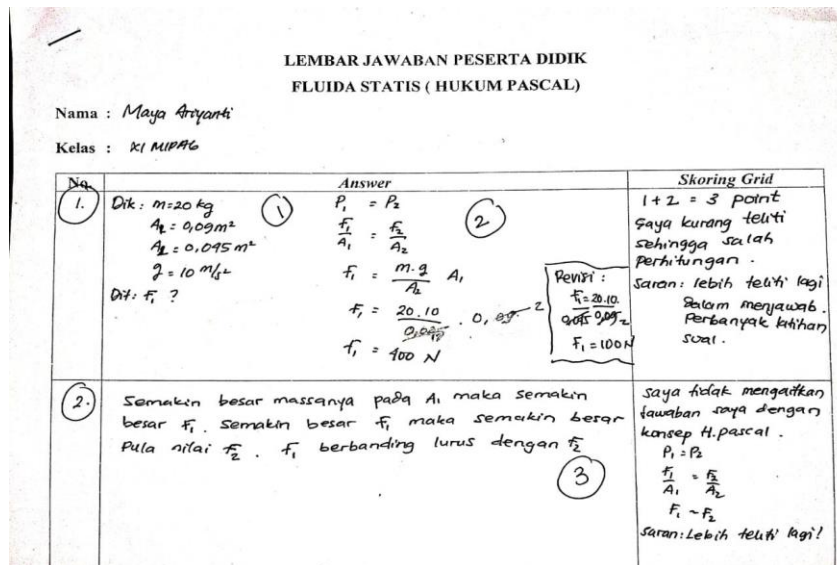 LEMBAR JAWABAN PESERTA DIDIK
FLUIDA STATIS ( HUKUM PASCAL)
Nama : Maya Ariyanti
Kelas : XI MIPA6
No. Answer Skoring Grid
1.
Dik : m=20 kg
A₂ = 0,09 m²
A₁ = 0,045 m²
g = 10 m/s²
Dit : F₁ ?
1
P₁ = P₂
F₁/A₁ = F₂/A₂
F₁ = m.g/A₂ A₁
F₁ = 20.10
F₁ = 400 N
2
Revisi :
F₁ = 20.10.
F₁ = 100 N
1 + 2 = 3 point
Saya kurang teliti
sehingga salah
perhitungan .
Saran : lebih teliti lagi
dalam menjawab .
Perbanyak latihan
soal .
2.
Semakin besar massanya pada A₁ maka semakin
besar F₁ . Semakin besar F₁ maka semakin besar
Pula nilai F₂ . F₁ berbanding lurus dengan F₂
3
saya tidak mengaitkan
jawaban saya dengan
konsep H.pascal .
P₁ = P₂
F₁/A₁ = F₂/A₂
F₁ ~ F₂
Saran : Lebih teliti lagi!